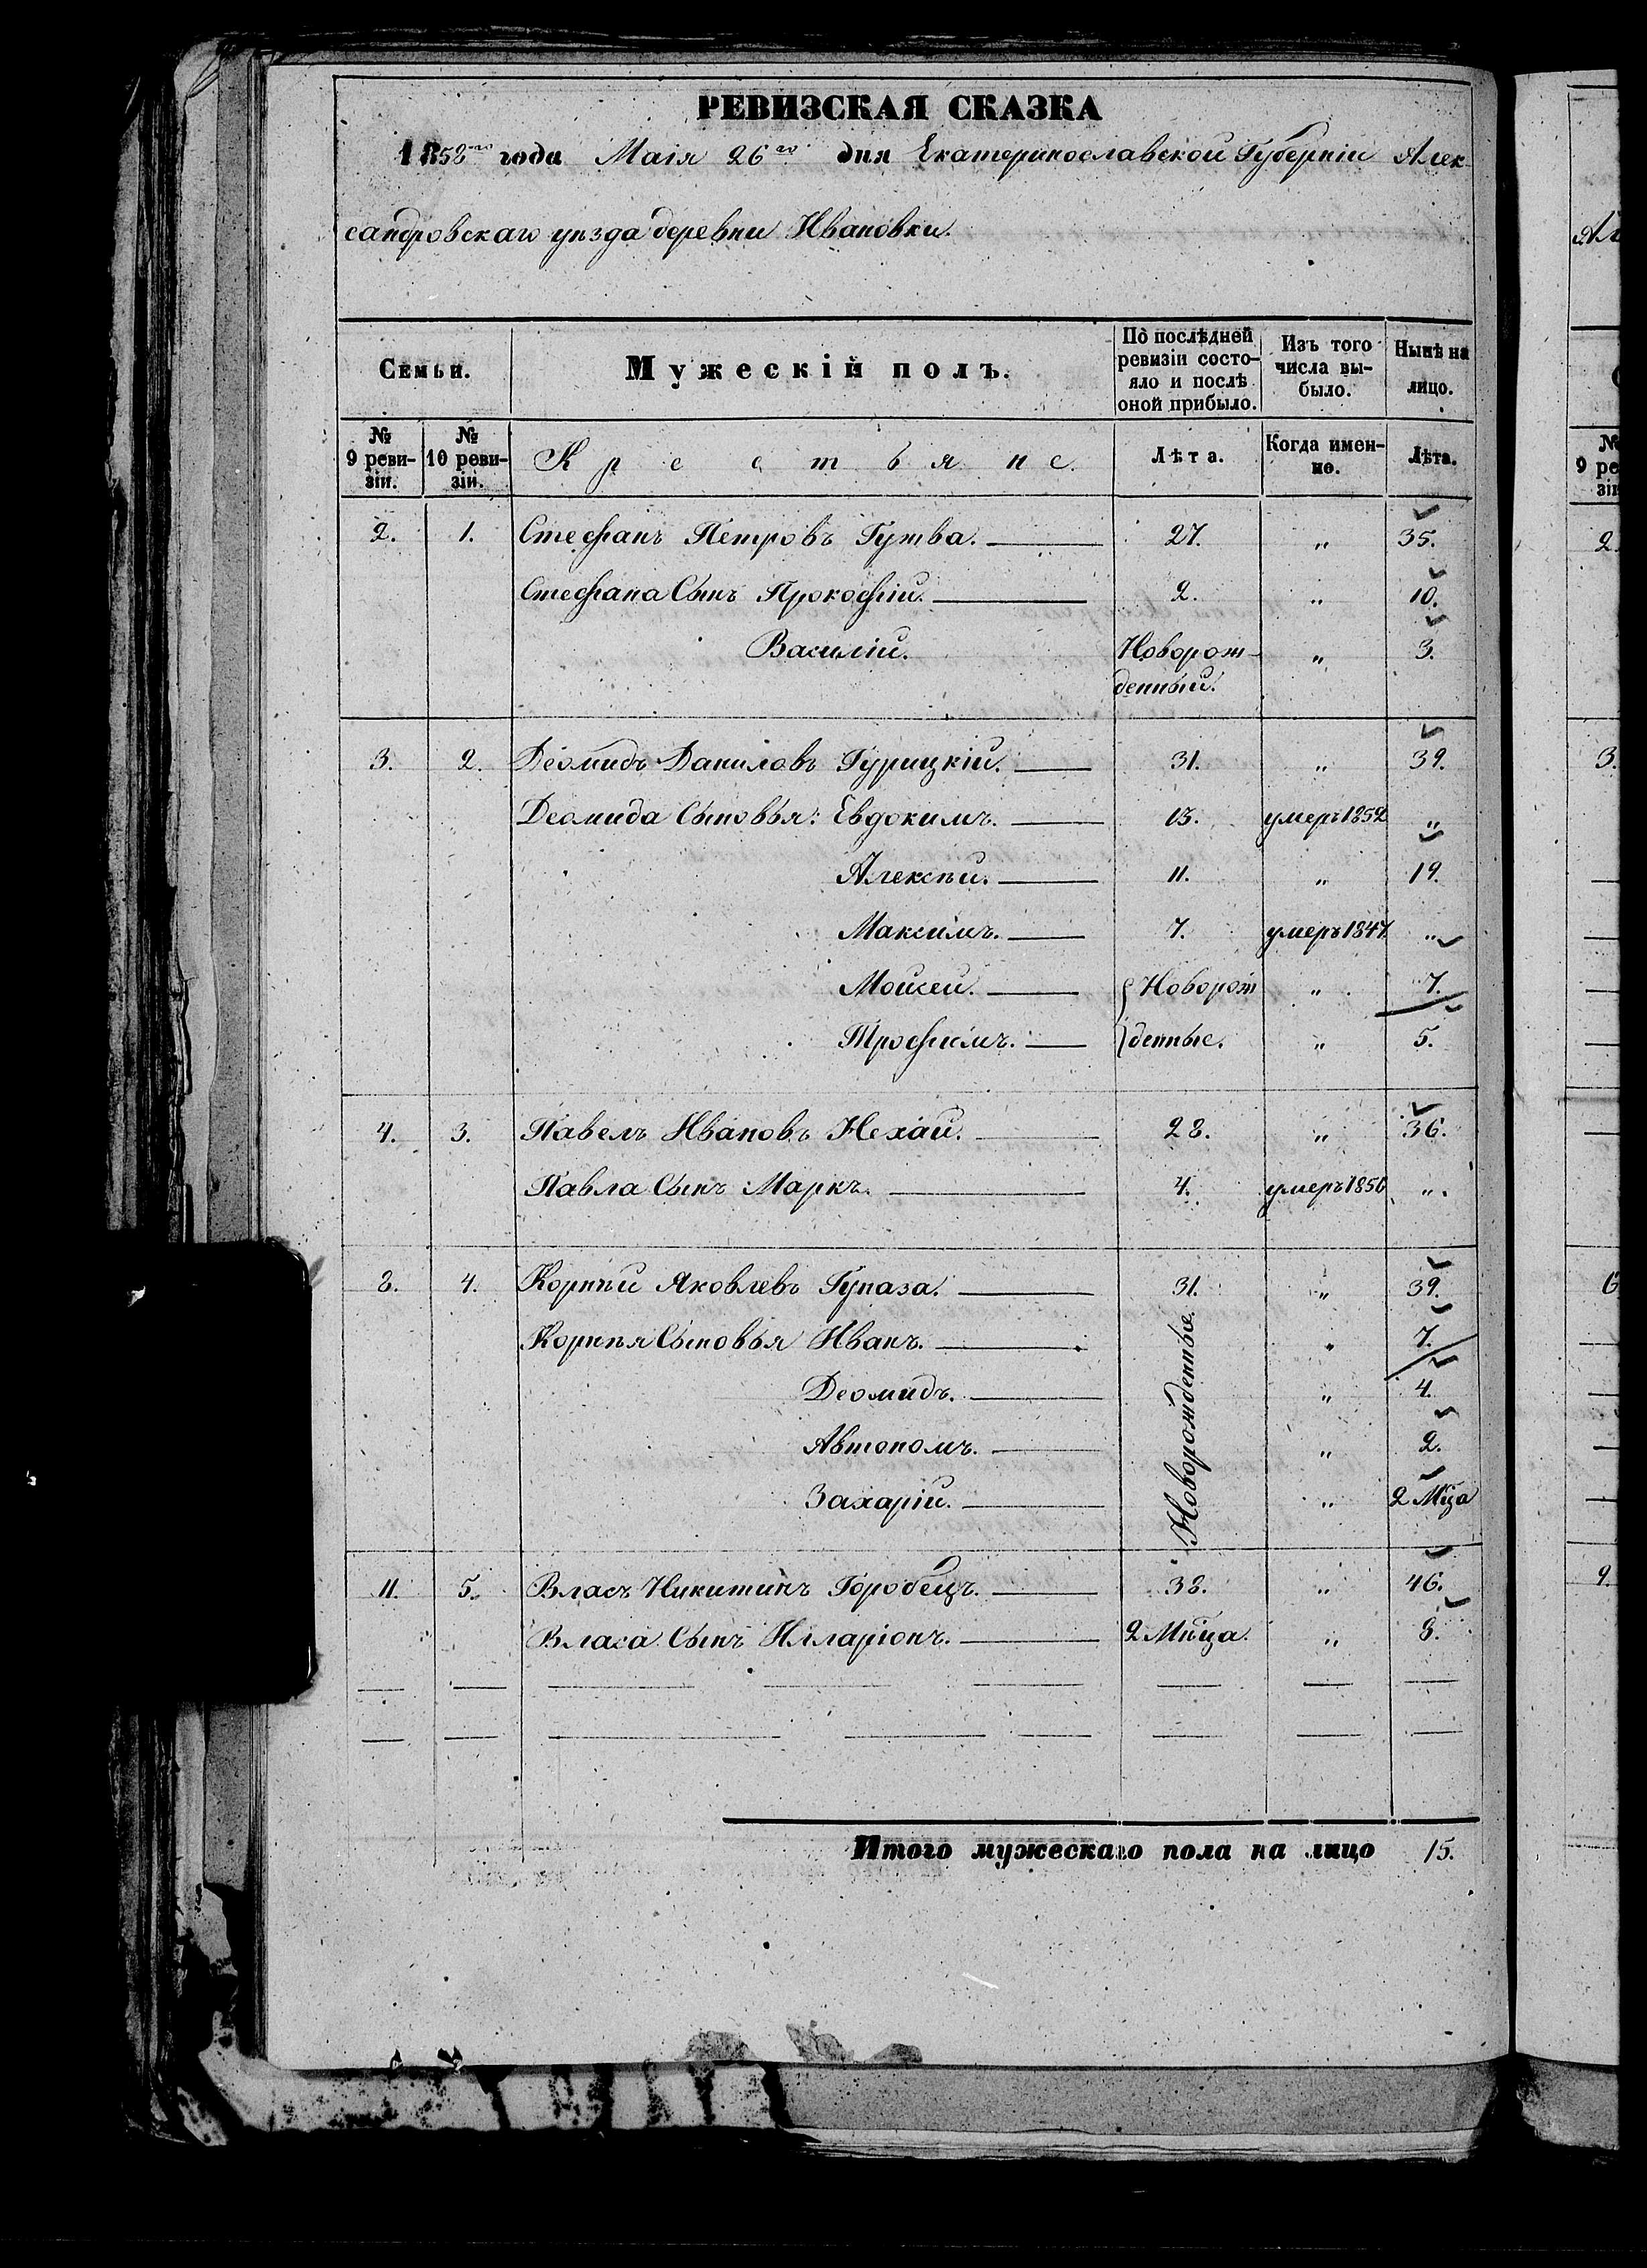 РЕВИЗСКАЯ СКАЗКА
1858го года Маія 26го дня Екатеринославской Губерніи Алек
сандровскаго уѣзда деревни Ивановки.
Семьи. Мужескій полъ. По послѣдней ревизіи состояло и послѣ оной прибыло. Изъ того числа выбыло. Нынѣ на лицо.
№ 9 ревизіи. № 10 ревизіи. Крестьяне. Лѣта. Когда именно. Лѣта.
2. 1. Стефанъ Петровъ Гужва. 27. „ 35.
Стефана Сынъ Прокофій. 2. „ 10.
Василій. Новорож- „ 3.
денный.
3. 2. Деомидъ Даниловъ Гурицкій. 31. „ 39.
Деомида Сыновья: Евдокимъ. 13. умеръ 1852 „
Алексѣй. 11. „ 19.
Максимъ. 7. умеръ 1847. „
Мойсей. Новорож „ 7.
Трофимъ. денные. „ 5.
4. 3. Павелъ Ивановъ Нехай. 28. „ 36.
Павла Сынъ Маркъ. 4. умеръ 1856 „
8. 4. Корнѣй Яковлевъ Гупаза. 31. „ 39.
Корнѣя Сыновья Иванъ. Новорожденные. „ 7.
Деомидъ. „ 4.
Автономъ. „ 2.
Захарій. „ 2 Мца
11. 5. Власъ Никитинъ Горобецъ. 38. „ 46.
Власа Сынъ Илларіонъ. 2 Мѣца. „ 8.
Итого мужескаго пола на лицо 15.
Ал
№
9 ре
зіи
2.
3.
6
9.